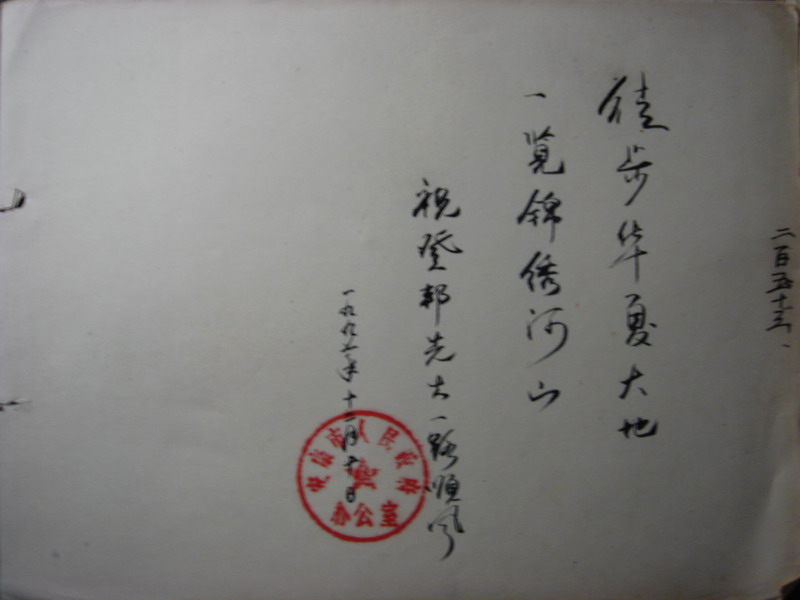 二百五十三、
徒步华夏大地
一览锦绣河山
祝登邦先生一路顺风
一九九七年十二月十日
市人民政府
办公室